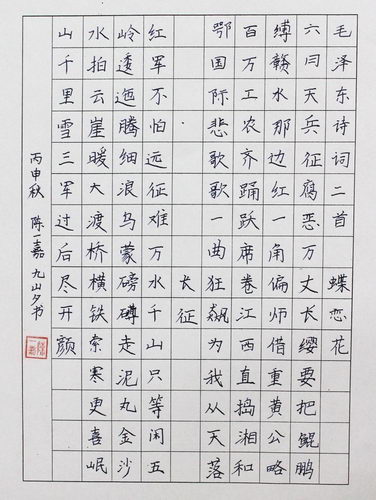 毛泽东诗词二首 蝶恋花
六月天兵征腐恶万丈长缨要把鲲鹏
缚赣水那边红一角偏师借重黄公略
百万工农齐踊跃席卷江西直捣湘和
鄂国际悲歌歌一曲狂飙为我从天落
长征
红军不怕远征难万水千山只等闲五
岭逶迤腾细浪乌蒙磅礴走泥丸金沙
水拍云崖暖大渡桥横铁索寒更喜岷
山千里雪三军过后尽开颜
丙申秋 陈一嘉 九山夕书